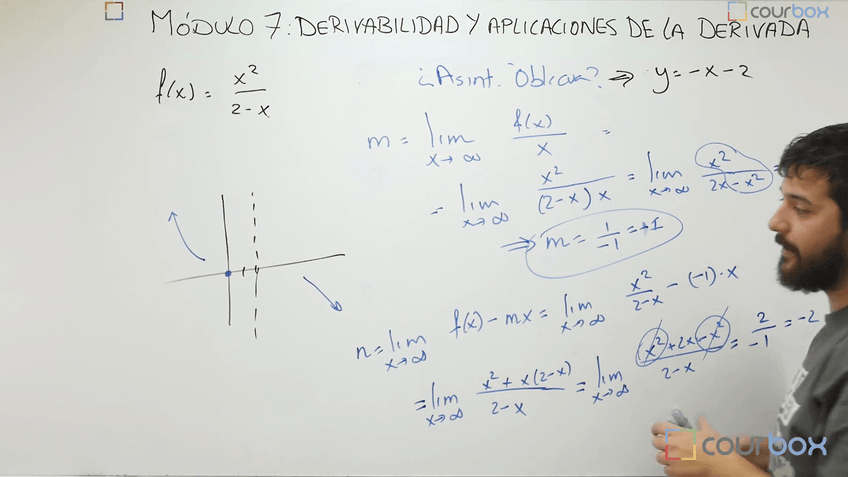 MÓDULO 7: DERIVABILIDAD Y APLICACIONES DE LA DERIVADA
courbox
f(x) = x²/(2-x)
¿Asint. Oblicua? ⇒ y = -x - 2
m = lim x→∞ f(x)/x =
= lim x→∞ x²/((2-x)x) = lim x→∞ x²/(2x-x²) =
⇒ m = 1/-1 = -1
n = lim x→∞ f(x) - mx = lim x→∞ x²/(2-x) - (-1)·x
= lim x→∞ (x² + x(2-x))/(2-x) = lim x→∞ (x² + 2x - x²)/(2-x) = 2/-1 = -2
courbox